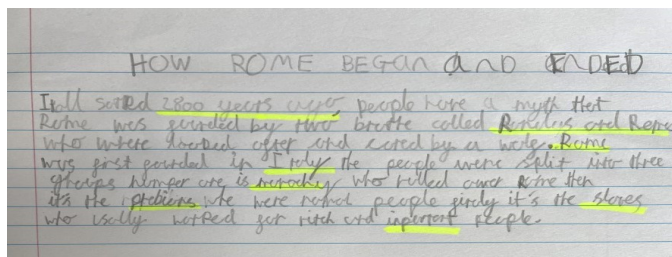 HOW ROME BEGAN AND ENDED
It all started 2800 years ago people have a myth that
Rome was founded by two called Romulus and
who where looked after and cared by a wole. Rome
was first founded in Italy the people were split into three
groups number one is who rulled over Rome then
it's the plebians who were normal people it's the slaves
who usally worked for ritch and inportent people.